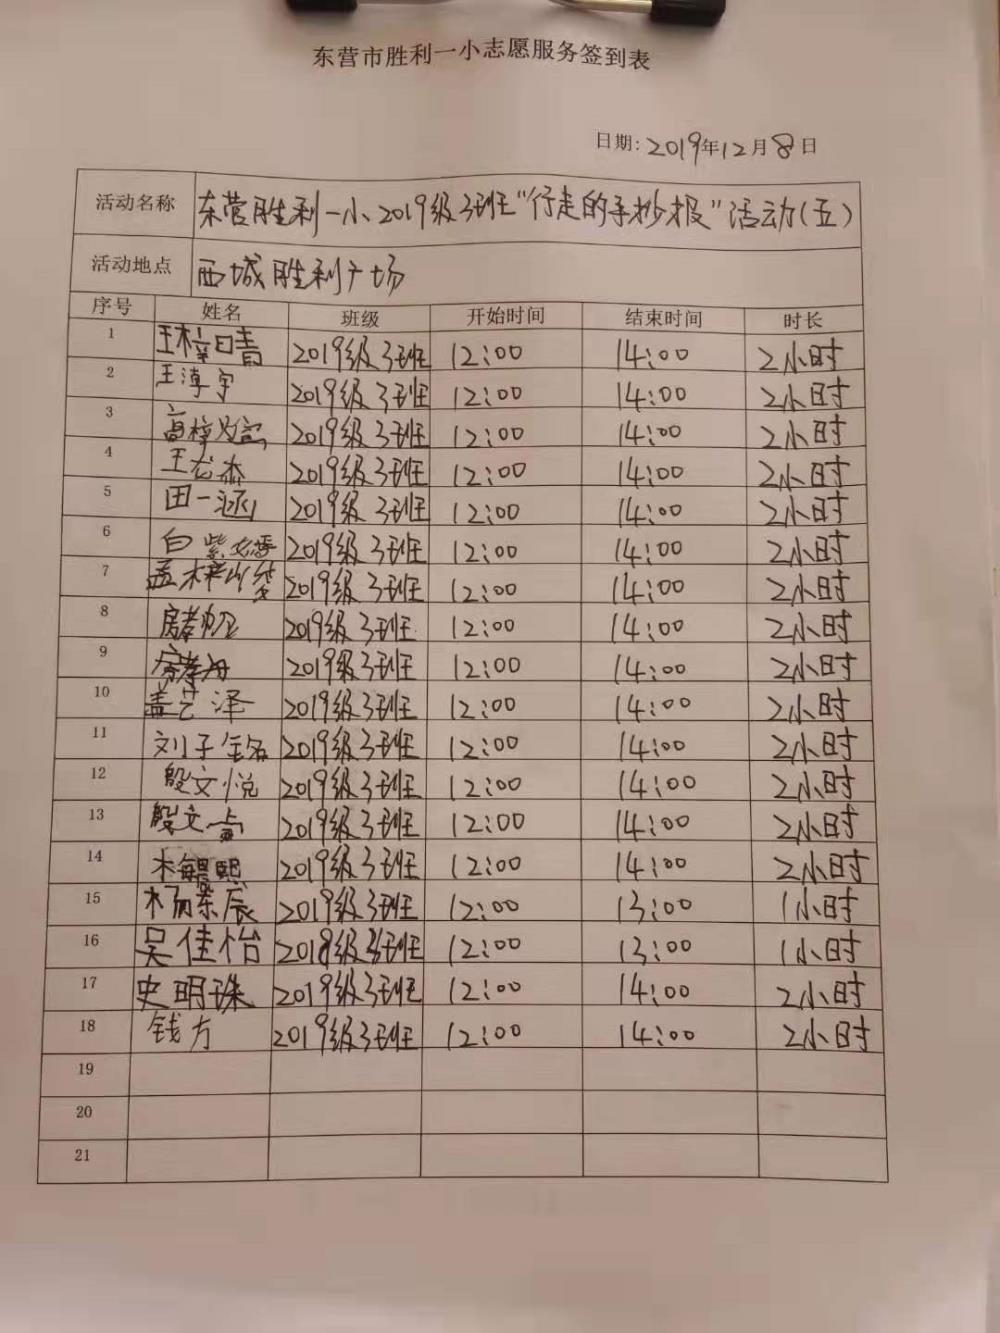 东营市胜利一小志愿服务签到表
日期: 2019年12月8日
活动名称 东营胜利一小2019级3班“行走的手抄报”活动(五)
活动地点 西城胜利广场
序号 姓名 班级 开始时间 结束时间 时长
1 王梓晴 2019级3班 12:00 14:00 2小时
2 王淳宇 2019级3班 12:00 14:00 2小时
3 高梓 2019级3班 12:00 14:00 2小时
4 王龙杰 2019级3班 12:00 14:00 2小时
5 田一涵 2019级3班 12:00 14:00 2小时
6 白紫 2019级3班 12:00 14:00 2小时
7 孟梓 2019级3班 12:00 14:00 2小时
8 2019级3班 12:00 14:00 2小时
9 2019级3班 12:00 14:00 2小时
10 盖艺泽 2019级3班 12:00 14:00 2小时
11 刘子铭 2019级3班 12:00 14:00 2小时
12 殷文悦 2019级3班 12:00 14:00 2小时
13 殷文 2019级3班 12:00 14:00 2小时
14 2019级3班 12:00 14:00 2小时
15 杨东辰 2019级3班 12:00 13:00 1小时
16 吴佳怡 2018级3班 12:00 13:00 1小时
17 史明珠 2019级3班 12:00 14:00 2小时
18 钱方 2019级3班 12:00 14:00 2小时
19
20
21